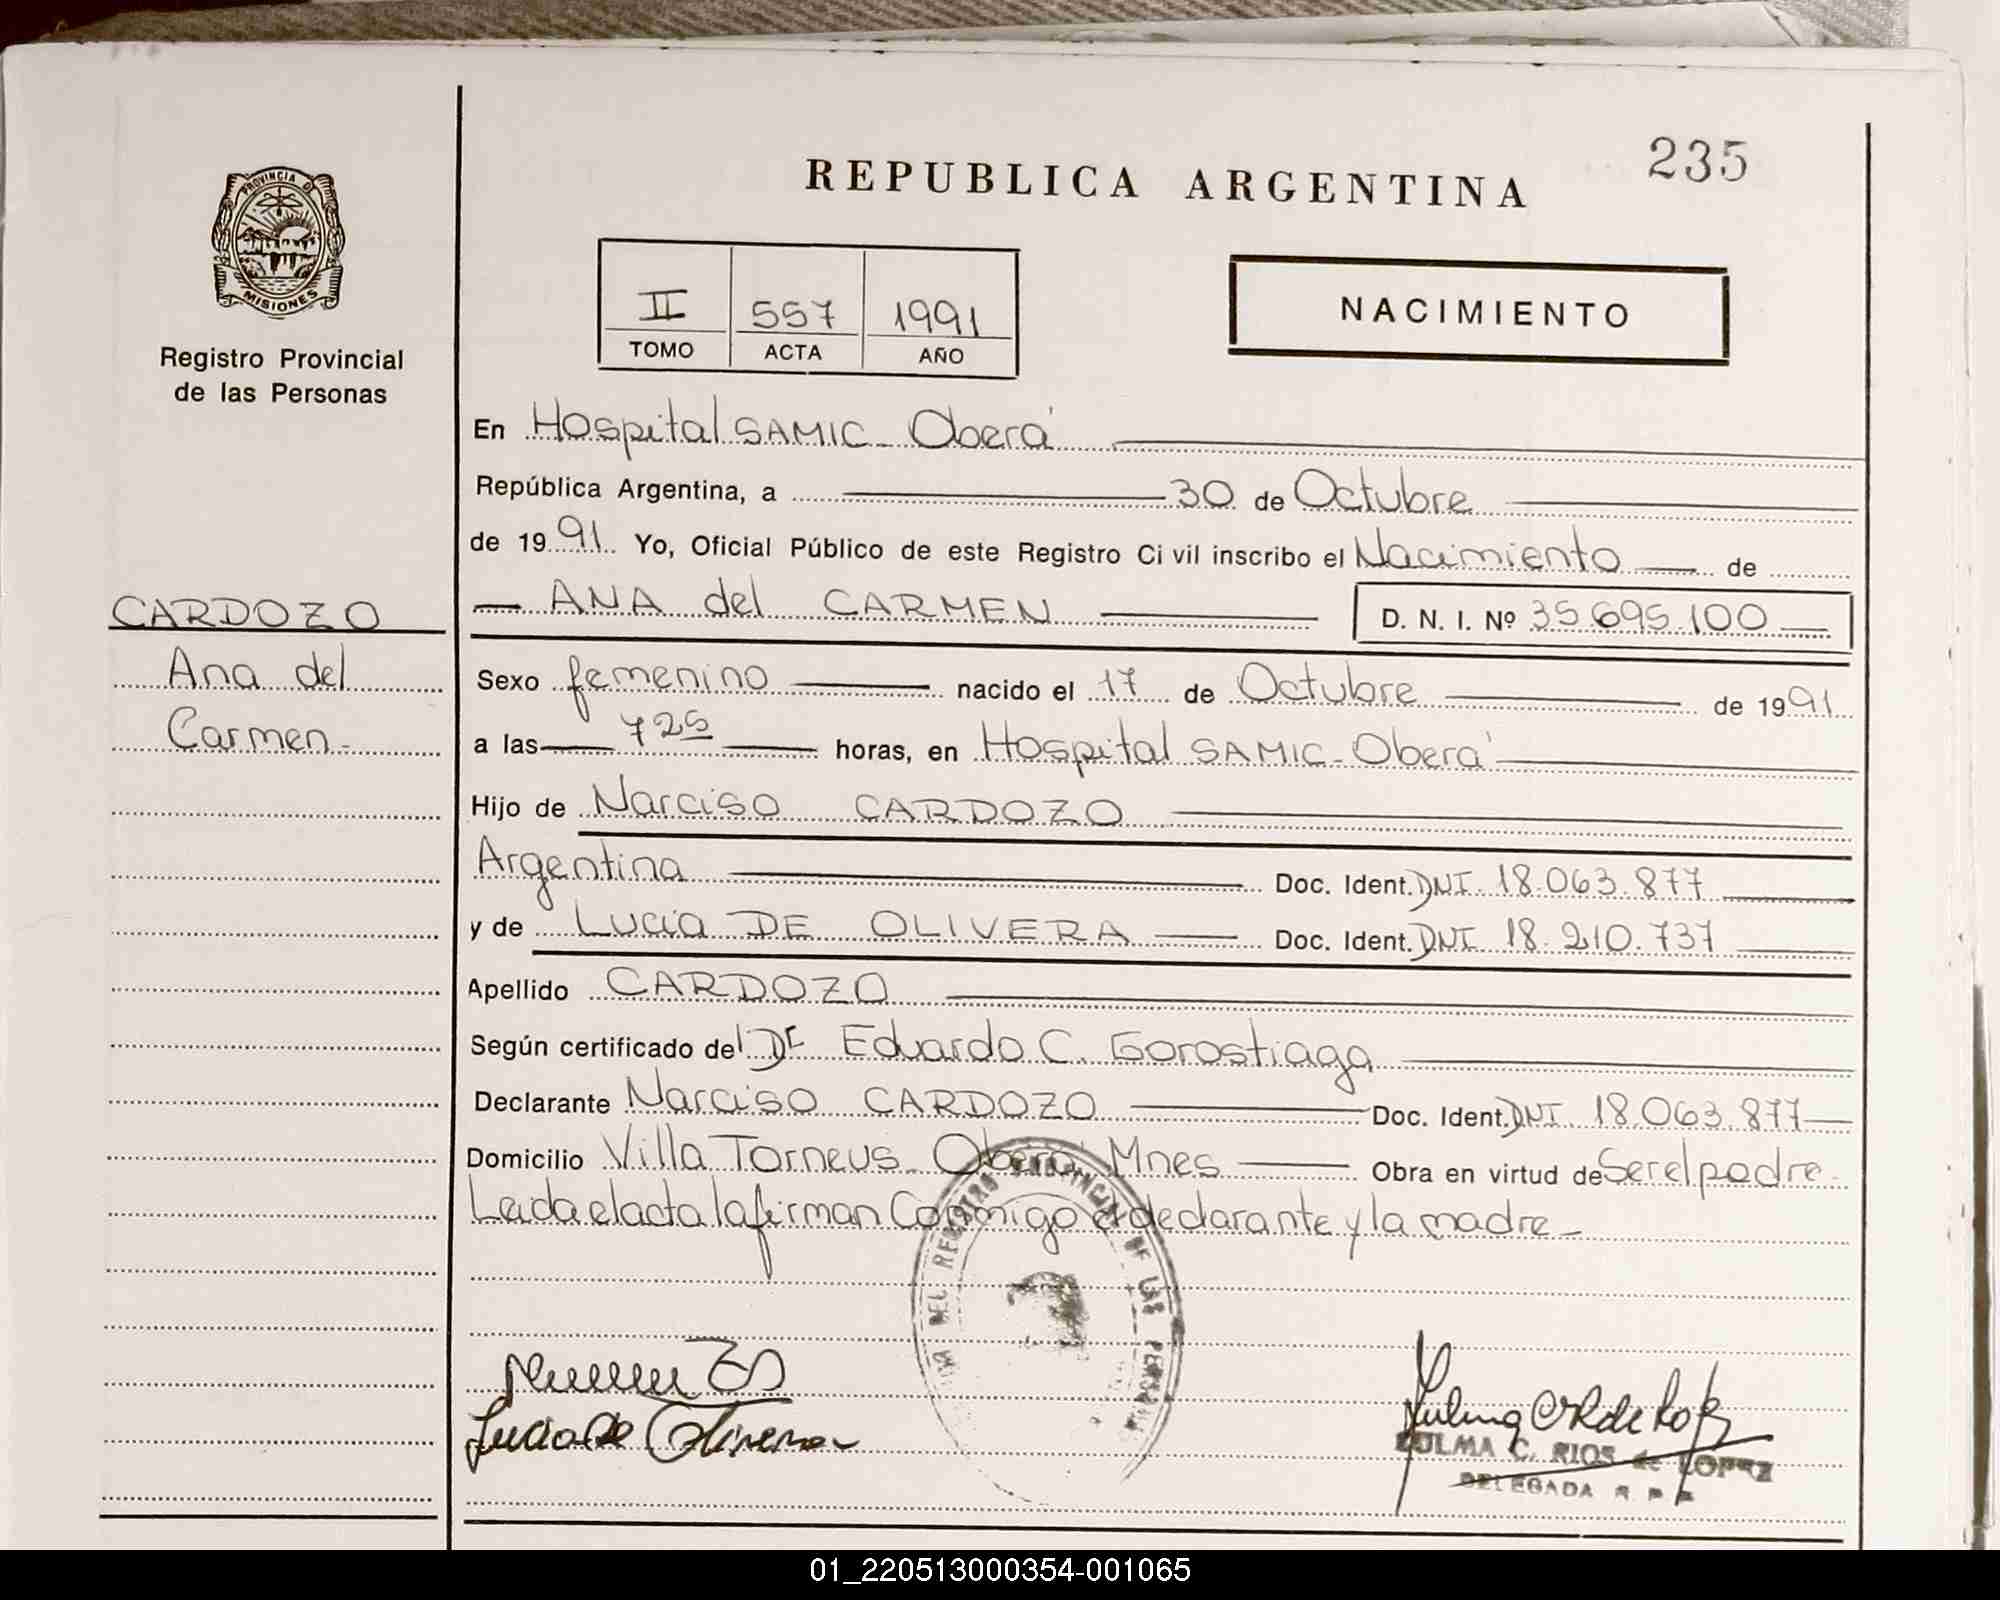 235
REPUBLICA ARGENTINA
PROVINCIA DE
MISIONES
Registro Provincial
de las Personas
II 557 1991
TOMO ACTA AÑO
NACIMIENTO
En Hospital SAMIC - Oberá
República Argentina, a 30 de Octubre
de 1991 Yo, Oficial Público de este Registro Civil inscribo el Nacimiento de
ANA del CARMEN D. N. I. Nº 35.695.100
CARDOZO
Ana del
Carmen
Sexo femenino nacido el 17 de Octubre de 1991
a las 7 25 horas, en Hospital SAMIC - Oberá
Hijo de Narciso CARDOZO
Argentina Doc. Ident. DNI. 18.063.877
y de Lucia DE OLIVERA Doc. Ident. DNI 18.210.737
Apellido CARDOZO
Según certificado del Dr Eduardo C. Gorostiaga
Declarante Narciso CARDOZO Doc. Ident. DNI. 18.063.877
Domicilio Villa Torneus - Oberá Mnes Obra en virtud de Ser el padre.
Leida el acta la firman Conmigo el declarante y la madre
DEL REGISTRO PROVINCIAL DE LAS PERSONAS
Lucia de Olivera
ZULMA C. RIOS de LOPEZ
DELEGADA R. P. P.
01_220513000354-001065